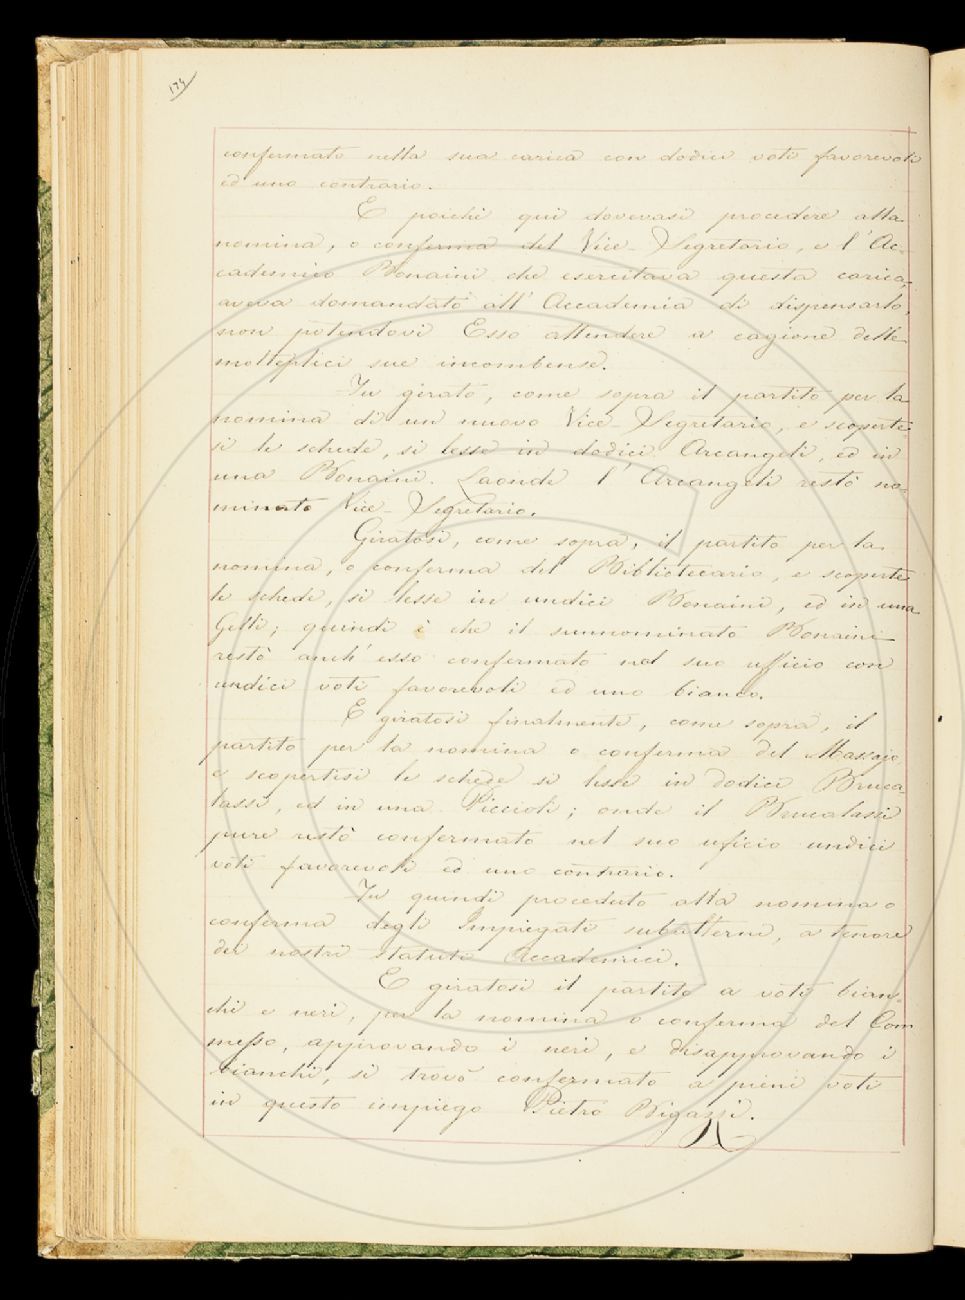 174
confermato nella sua carica con dodici voti favorevoli
ed uno contrario.
E poichè qui dovevasi procedere alla
nomina, o conferma del Vice-Segretario, e l'Ac-
cademico Bonaini che esercitava questa carica,
aveva domandato all'Accademia di dispensarlo,
non potendovi Esso attendere a cagione delle
molteplici sue incombense.
Fu girato, come sopra il partito per la
nomina di un nuovo Vice-Segretario, e scoperte-
si le schede, si lesse in dodici Arcangeli, ed in
una Bonaini. Laonde l'Arcangeli restò no-
minato Vice-Segretario.
Giratosi, come sopra, il partito per la
nomina, o conferma del Bibliotecario, e scoperte
le schede, si lesse in undici Bonaini, ed in una
Gelli; quindi è che il sunnominato Bonaini
restò anch'esso confermato nel suo ufficio con
undici voti favorevoli ed uno bianco.
E giratosi finalmente, come sopra, il
partito per la nomina o conferma del Massajo,
e scopertisi le schede si lesse in dodici Bruca
lassi, ed in una Piccioli; onde il Brucalassi
pure restò confermato nel suo uficio undici
voti favorevoli ed uno contrario.
Fu quindi proceduto alla nomina o
conferma degli Impiegati subalterni, a tenore
dei nostri statuti Accademici.
E giratosi il partito a voti bian-
chi e neri, per la nomina o conferma del Com
messo, approvando i neri, e disapprovando i
bianchi, si trovò confermato a pieni voti
in questo impiego Pietro Bigazzi.